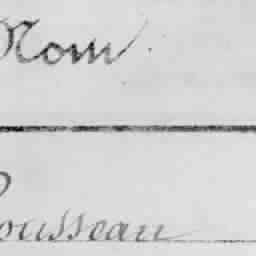 Nom
Rousseau